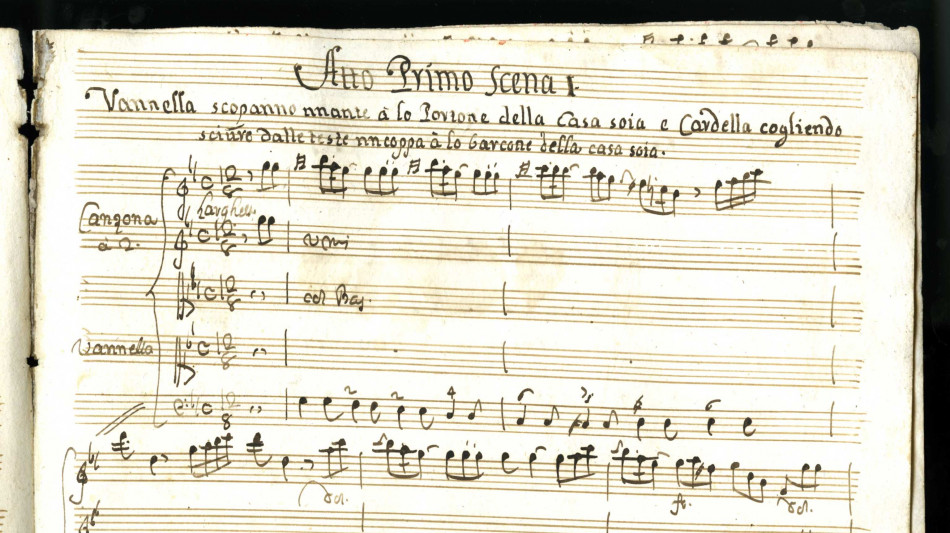 Atto Primo Scena I.
Vannella scopanno nnante à lo Portone della Casa soia e Cardella cogliendo
sciure dalle teste nncoppa à lo barcone della casa soia.
Canzona
à 2.
Largheto.
C 12/8
C 12/8
unni
C 12/8
col Bas.
Vannella
C 12/8
C 12/8
2 4
6
dol.
fe.
dol.